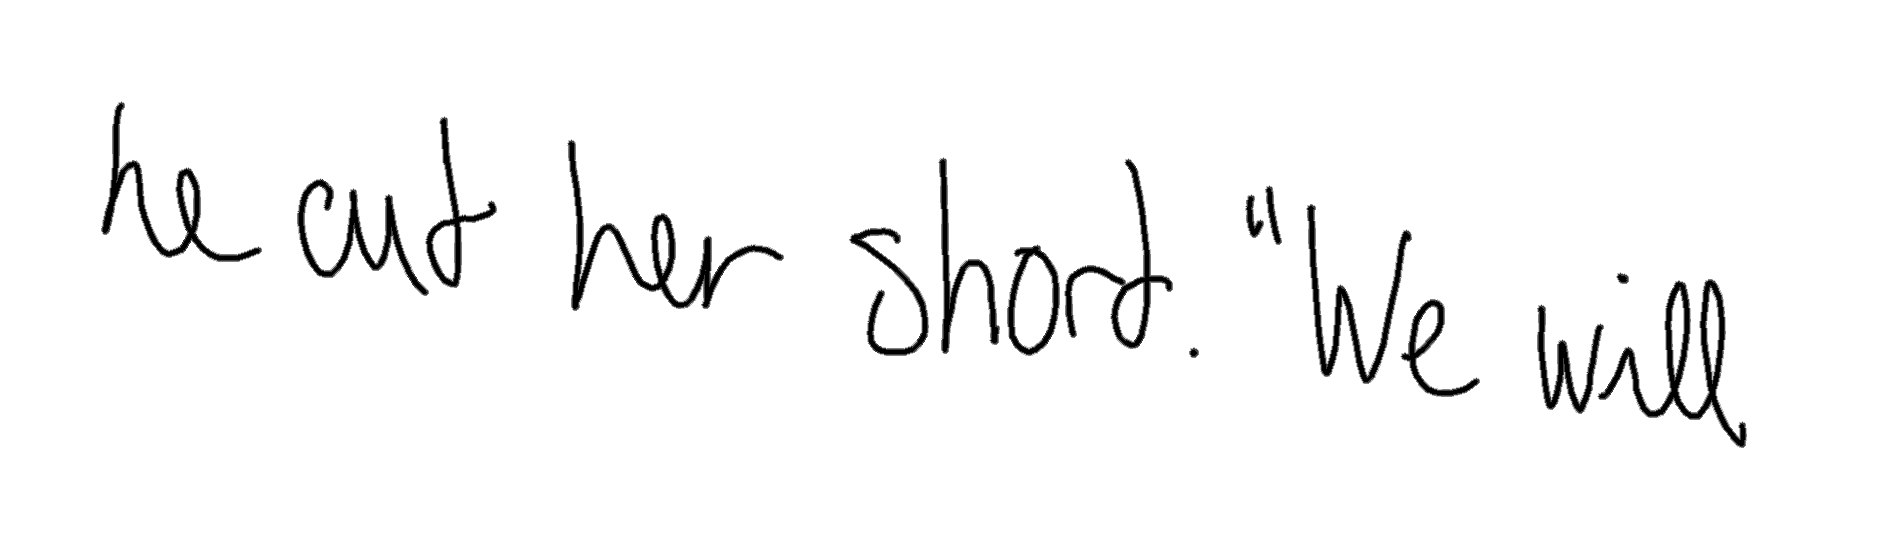 he cut her short. "We will